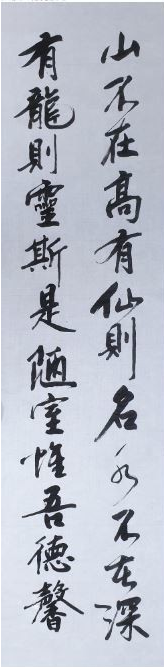 山不在高有仙則名水不在深
有龍則靈斯是陋室惟吾德馨